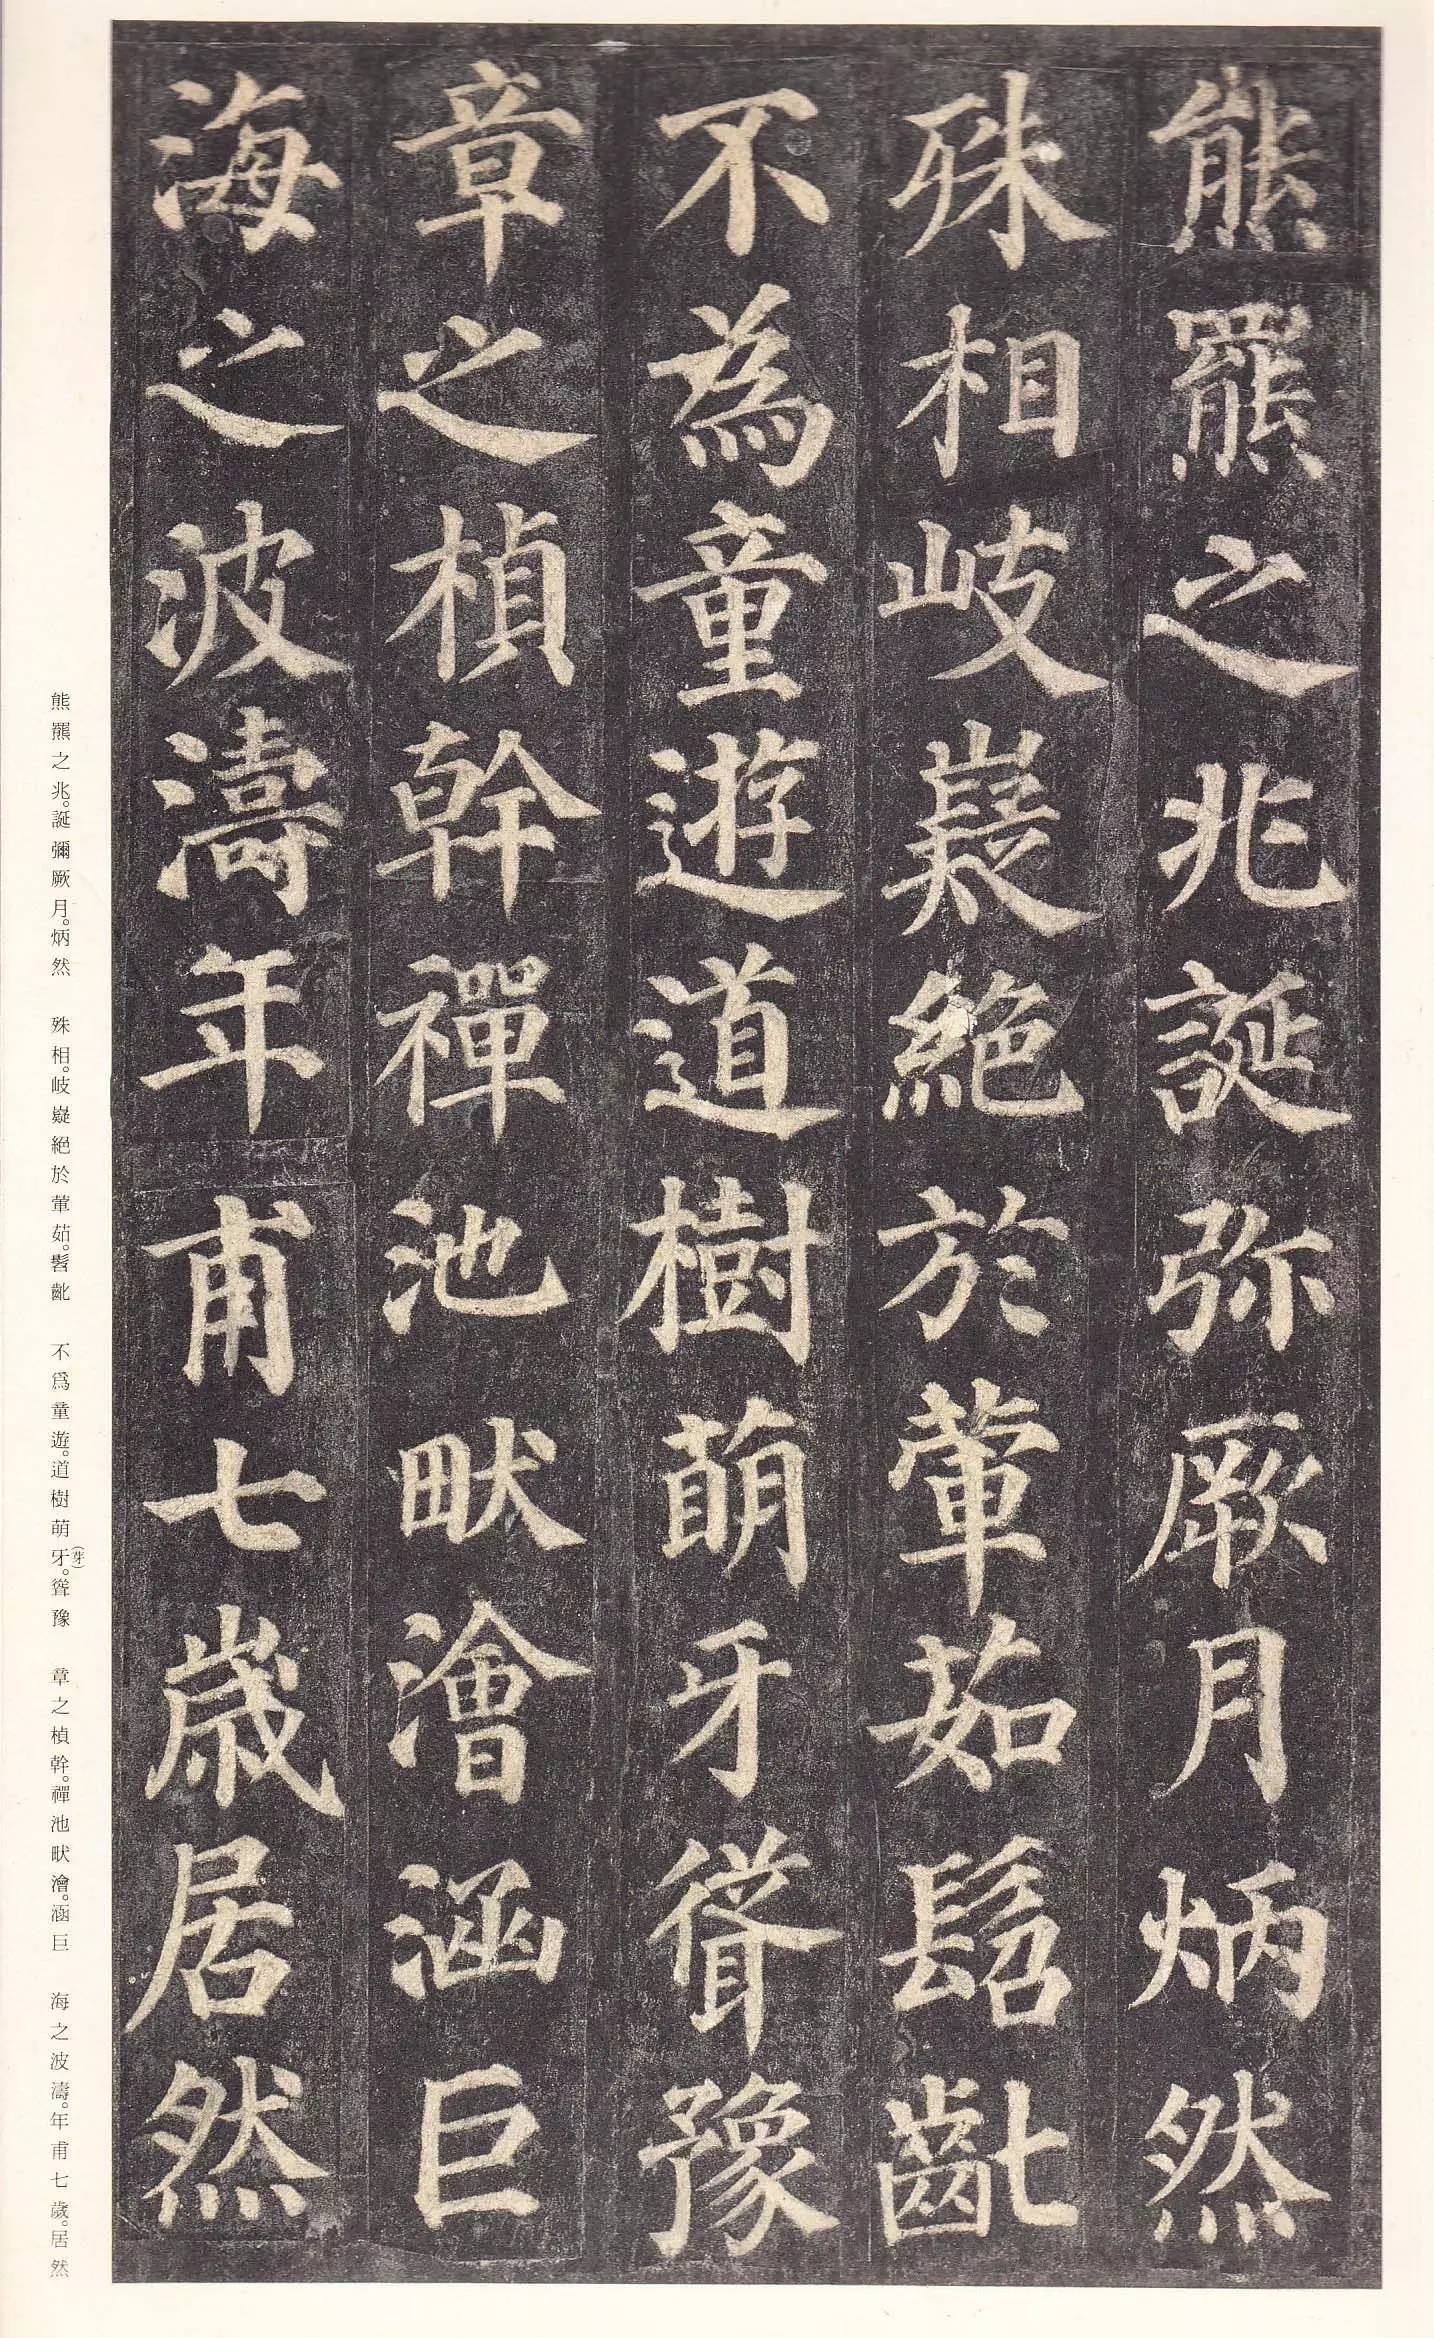 熊羆之兆誕弥厥月炳然
殊相岐嶷絕於葷茹髫齔
不為童遊道樹萌牙聳豫
章之楨幹禪池畎澮涵巨
海之波濤年甫七歲居然
熊羆之兆。誕彌厥月。炳然　殊相。岐嶷絕於葷茹。髫齔　不爲童遊。道樹萌牙(芽)。聳豫　章之楨幹。禪池畎澮。涵巨　海之波濤。年甫七歲。居然